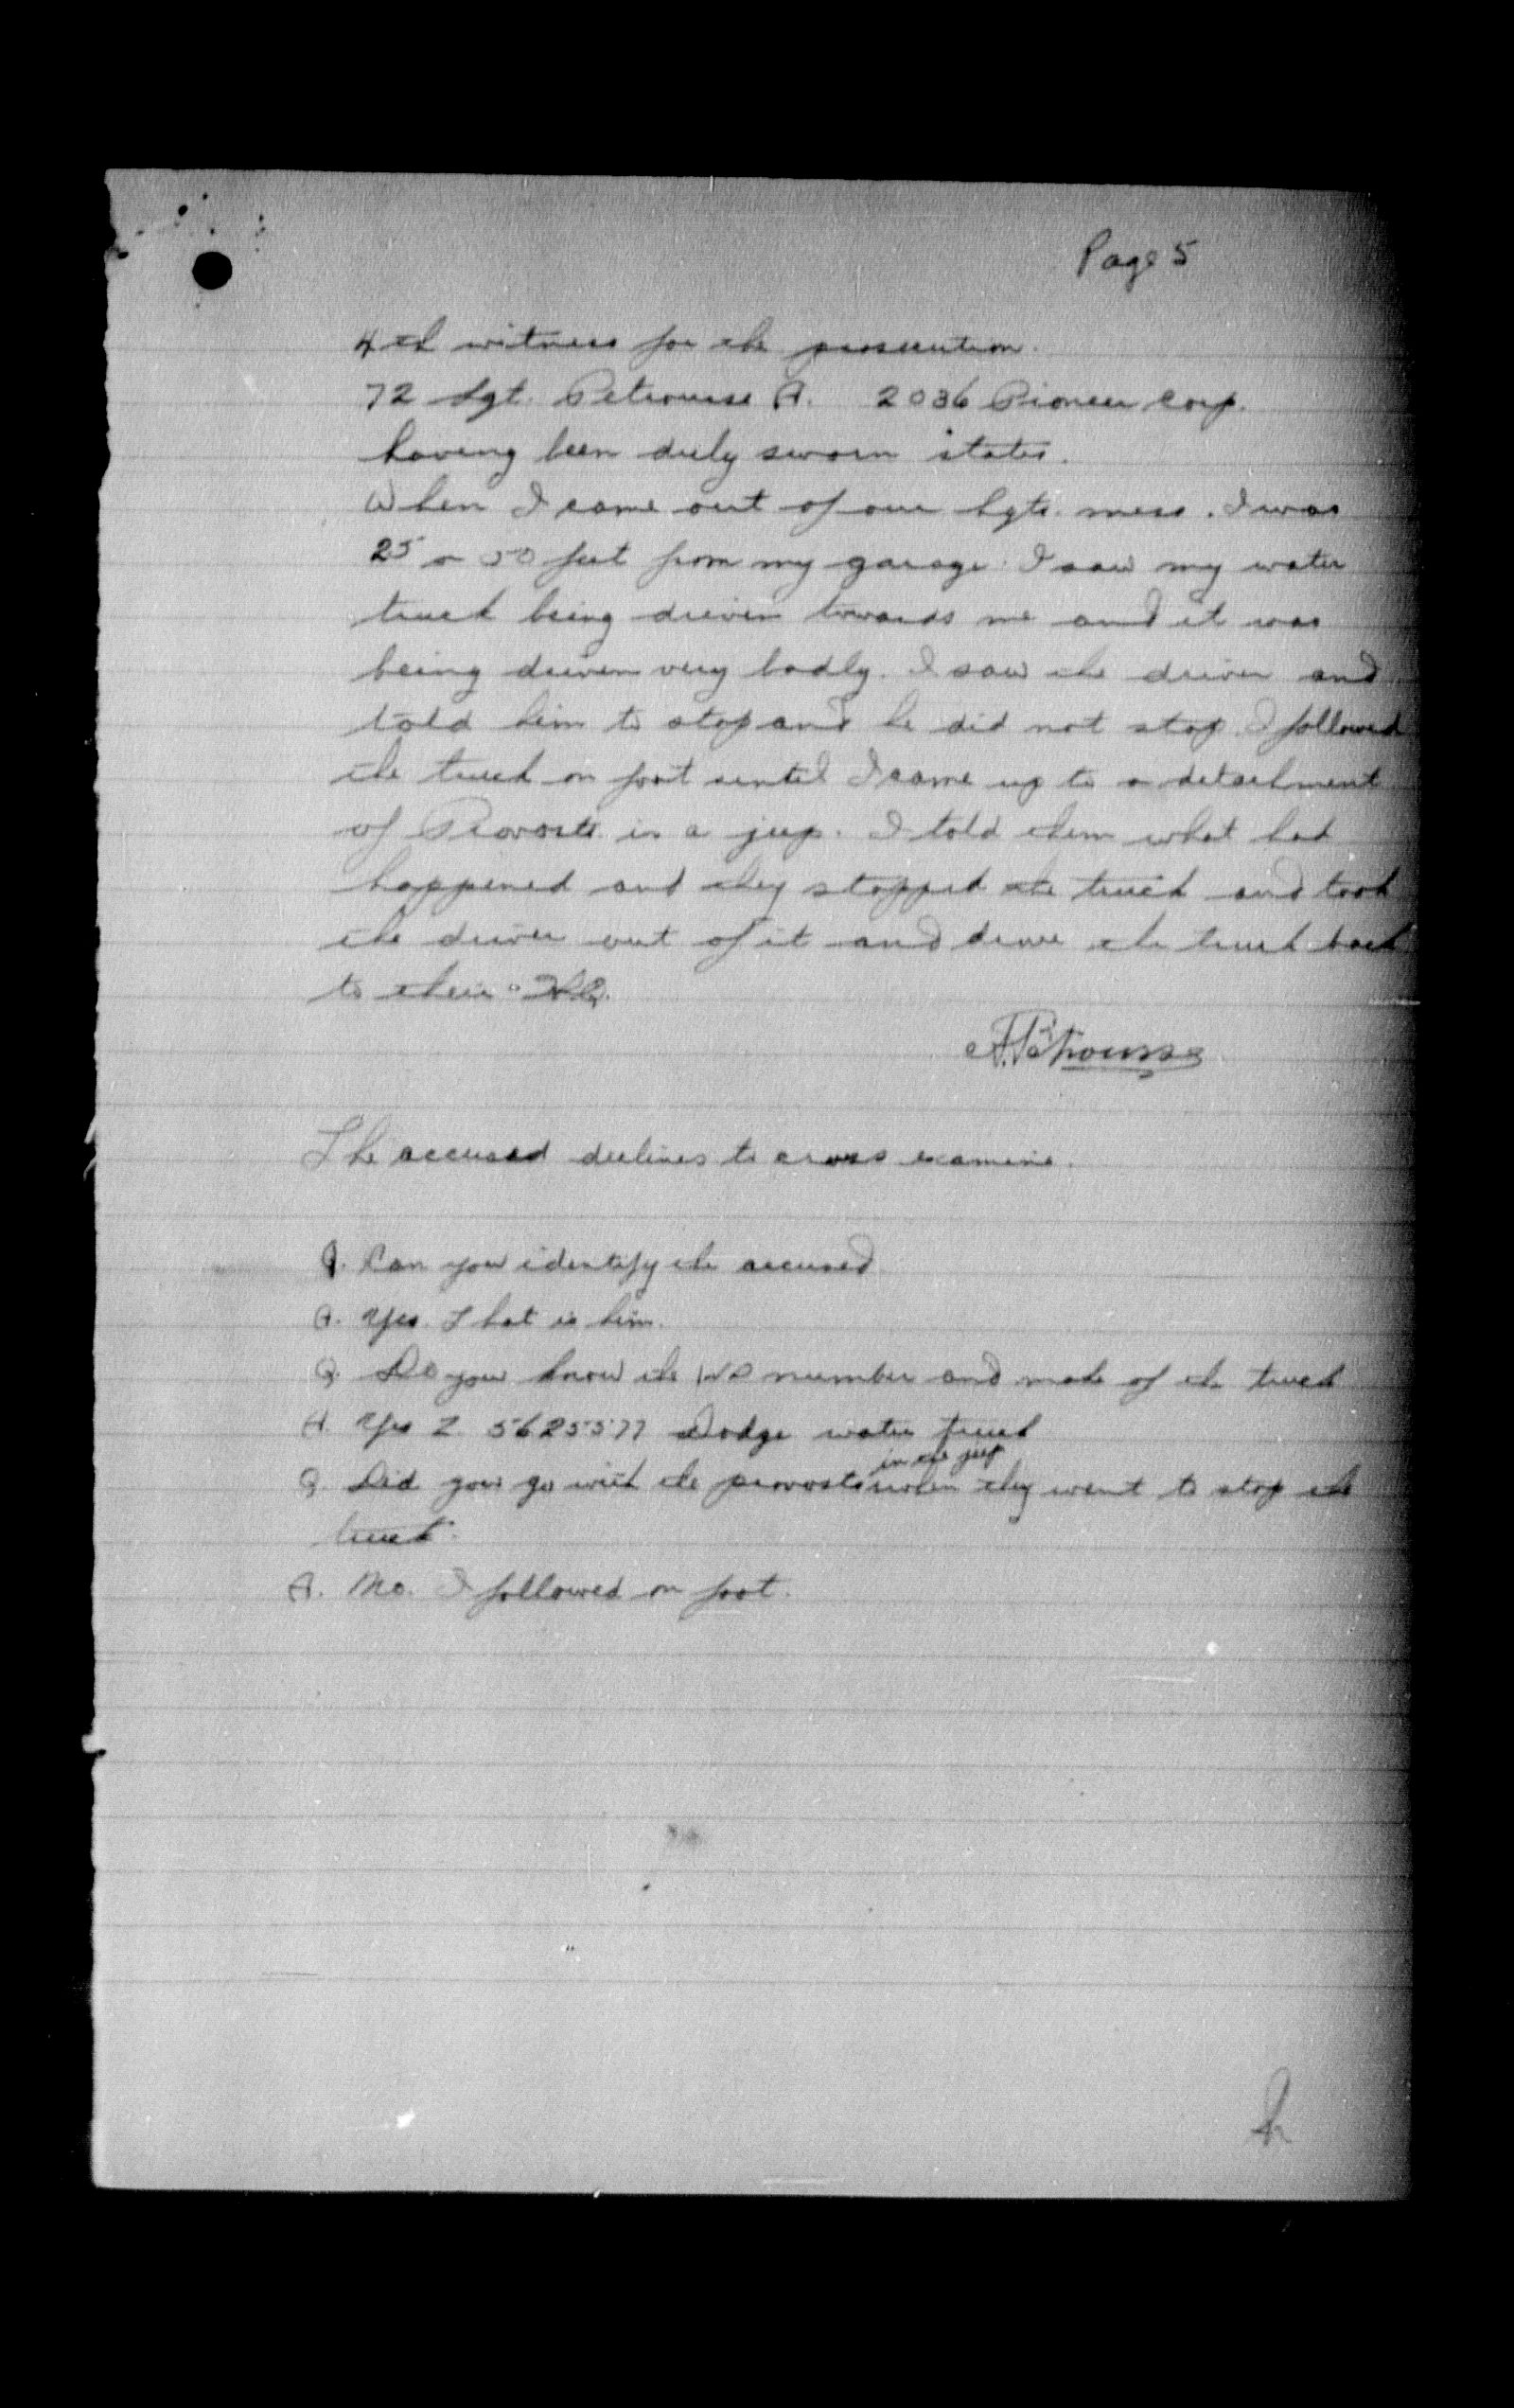 Page 5
4th witness for the prosecution.
72 Sgt. Petrousse A. 2036 Pioneer Corp.
having been duly sworn states.
When I came out of our Sgts. mess. I was
25 or 50 feet from my garage. I saw my water
truck being driven towards me and it was
being driven very badly. I saw the driver and
told him to stop and he did not stop. I followed
the truck on foot until I came up to a detachment
of Provosts in a jeep. I told them what had
happened and they stopped the truck and took
the driver out of it and drove the truck back
to their HQ.
A. Petrousse
The accused declines to cross examine.
Q. Can you identify the accused
A. Yes. That is him.
Q. Do you know the WD number and make of the truck
A. Yes Z 5625577 Dodge water truck
in the jeep
Q. Did you go with the provosts when they went to stop the
truck.
A. No. I followed on foot.